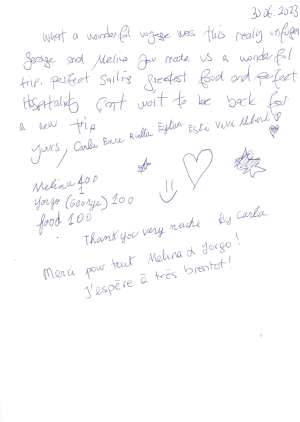 30.06.2023
What a wonderful voyage was this really
George and Melina you made us a wonderful
trip. perfect sailing greatest food and perfect
Hospitality Can't wait to be back for
a new trip
yours, Carla
Melina 100
Yorgo (George) 100
food 100
Thank you very much By Carla
Merci pour tout Melina & Yorgo!
J'espère à très bientôt!